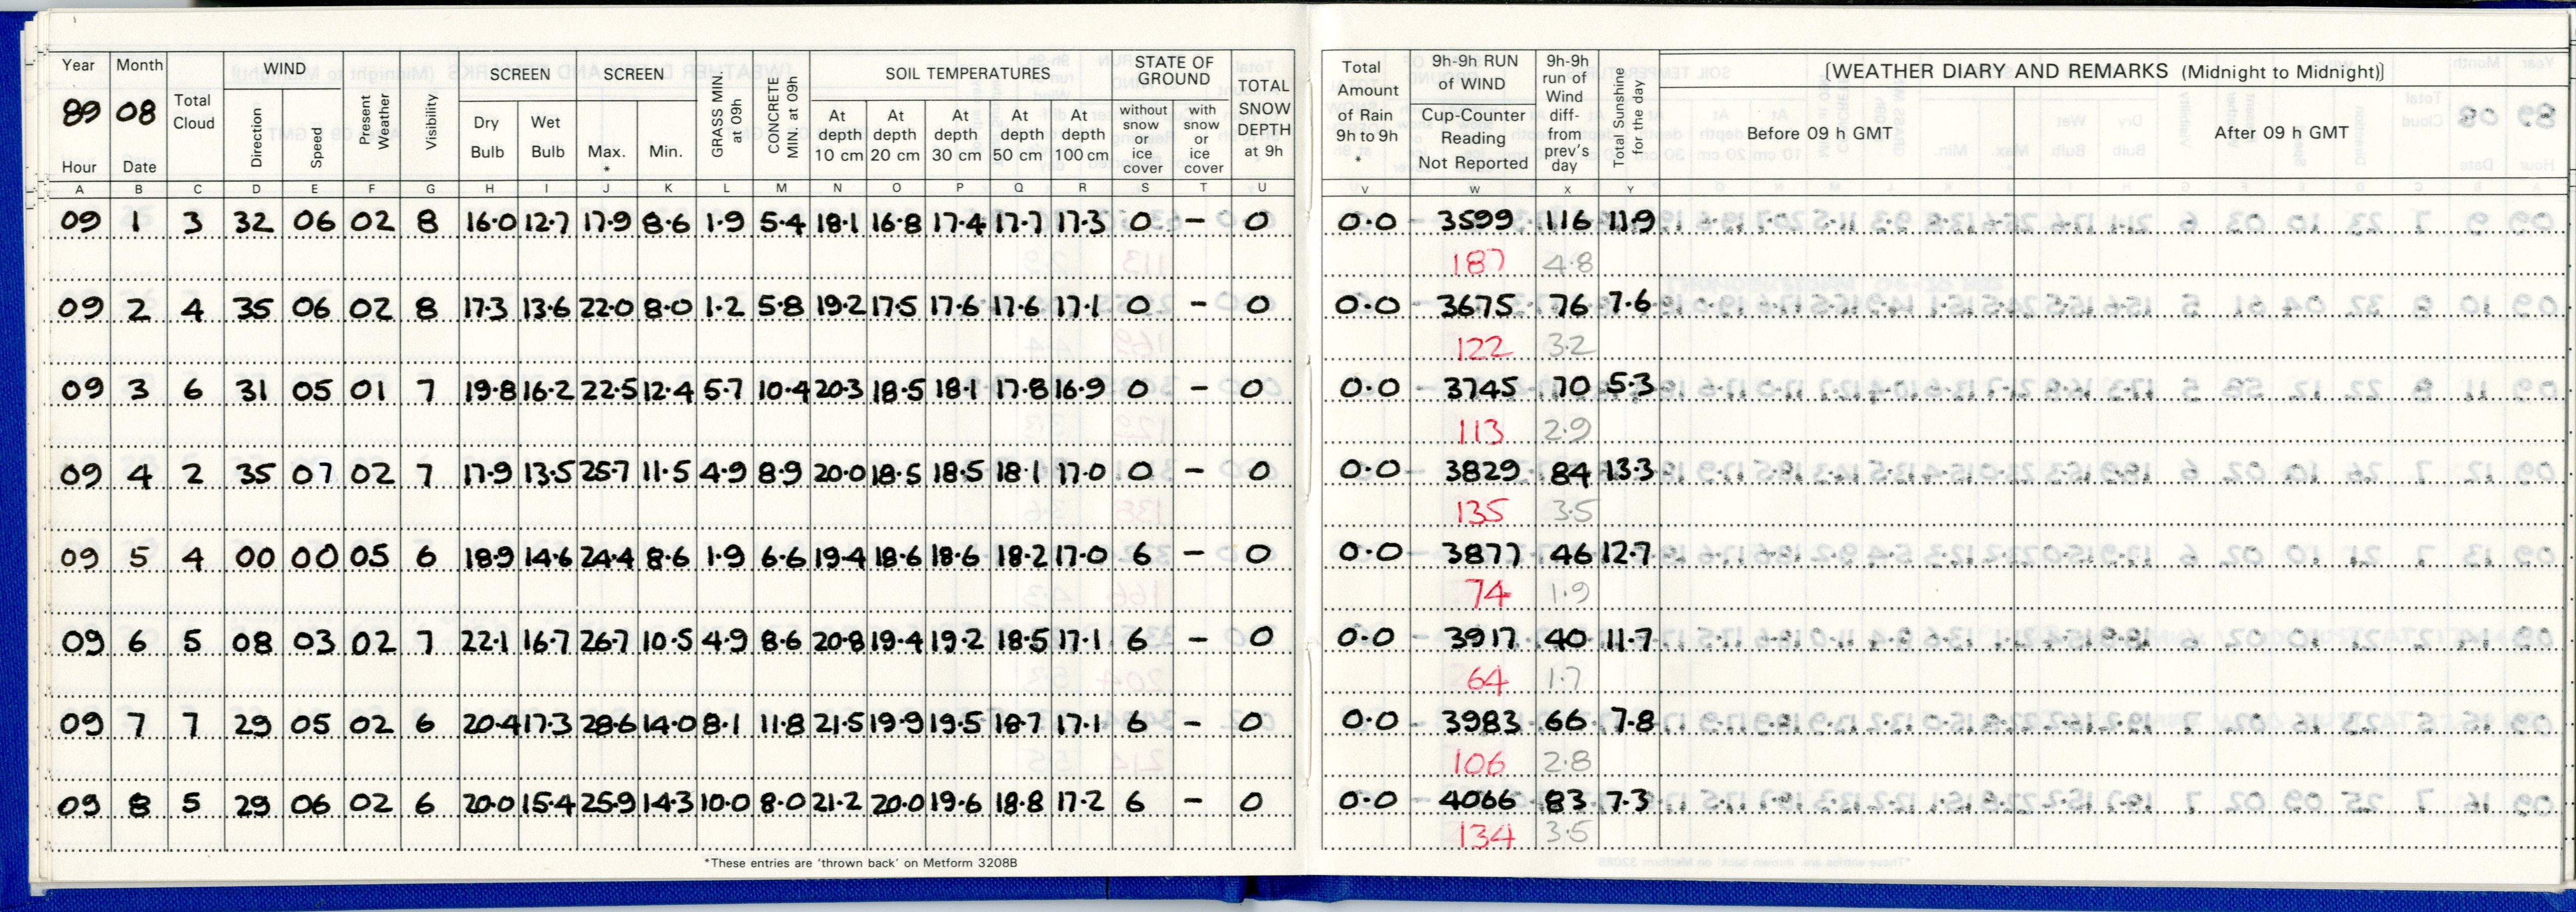 Year Month Total Cloud WIND Present Weather Visibility SCREEN SCREEN GRASS MIN. at 09h CONCRETE MIN. at 09h SOIL TEMPERATURES STATE OF GROUND TOTAL SNOW DEPTH at 9h Total Amount of Rain 9h to 9h * 9h-9h RUN of WIND 9h-9h run of Wind diff- from prev's day Total Sunshine for the day [WEATHER DIARY AND REMARKS (Midnight to Midnight)]
89 08 Direction Speed Dry Bulb Wet Bulb Max. * Min. At depth 10 cm At depth 20 cm At depth 30 cm At depth 50 cm At depth 100 cm without snow or ice cover with snow or ice cover Cup-Counter Reading Not Reported Before 09 h GMT After 09 h GMT
Hour Date
A B C D E F G H I J K L M N O P Q R S T U V W X Y
09 1 3 32 06 02 8 16.0 12.7 17.9 8.6 1.9 5.4 18.1 16.8 17.4 17.7 17.3 0 – 0 0.0 3599 116 11.9
187 4.8
09 2 4 35 06 02 8 17.3 13.6 22.0 8.0 1.2 5.8 19.2 17.5 17.6 17.6 17.1 0 – 0 0.0 3675 76 7.6
122 3.2
09 3 6 31 05 01 7 19.8 16.2 22.5 12.4 5.7 10.4 20.3 18.5 18.1 17.8 16.9 0 – 0 0.0 3745 70 5.3
113 2.9
09 4 2 35 07 02 7 17.9 13.5 25.7 11.5 4.9 8.9 20.0 18.5 18.5 18.1 17.0 0 – 0 0.0 3829 84 13.3
135 3.5
09 5 4 00 00 05 6 18.9 14.6 24.4 8.6 1.9 6.6 19.4 18.6 18.6 18.2 17.0 6 – 0 0.0 3877 46 12.7
74 1.9
09 6 5 08 03 02 7 22.1 16.7 26.7 10.5 4.9 8.6 20.8 19.4 19.2 18.5 17.1 6 – 0 0.0 3917 40 11.7
64 1.7
09 7 7 29 05 02 6 20.4 17.3 28.6 14.0 8.1 11.8 21.5 19.9 19.5 18.7 17.1 6 – 0 0.0 3983 66 7.8
106 2.8
09 8 5 29 06 02 6 20.0 15.4 25.9 14.3 10.0 8.0 21.2 20.0 19.6 18.8 17.2 6 – 0 0.0 4066 83 7.3
134 3.5
*These entries are 'thrown back' on Metform 3208B